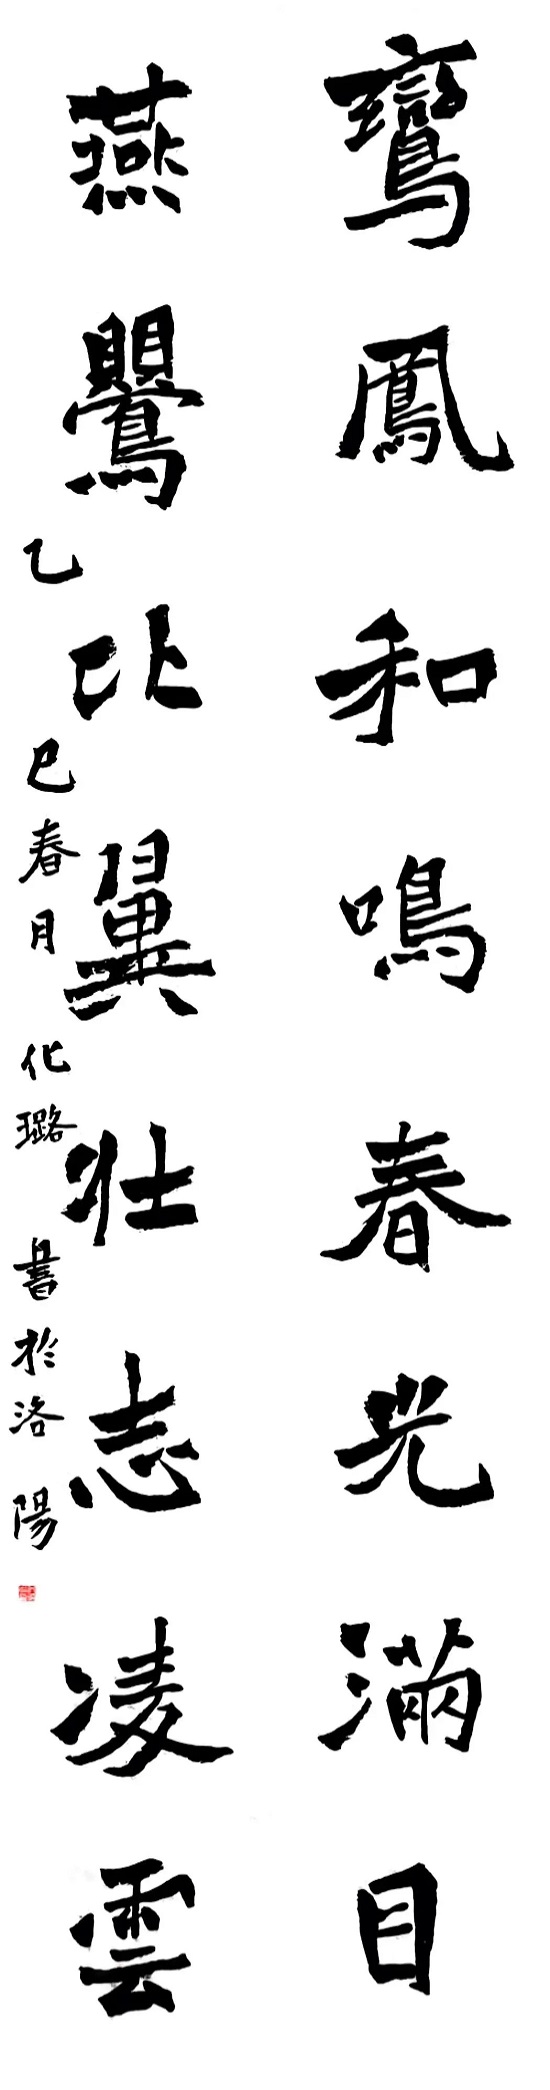 鸞鳳和鳴春光滿目
燕鸎比翼壯志凌雲
乙巳春月化璐書於洛陽